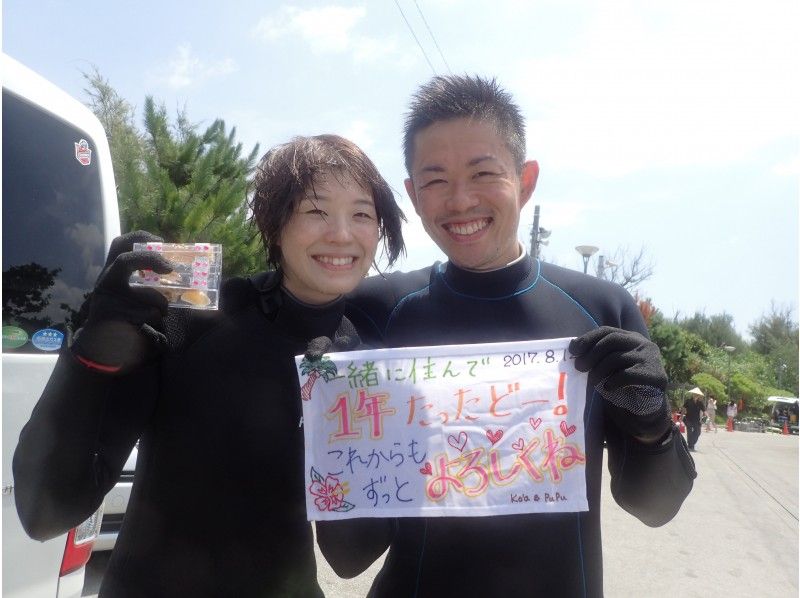 一緒に住んで 2017.8.1
1年 たったどー!
これからも
ずっと よろしくね
Ko'a & PuPu